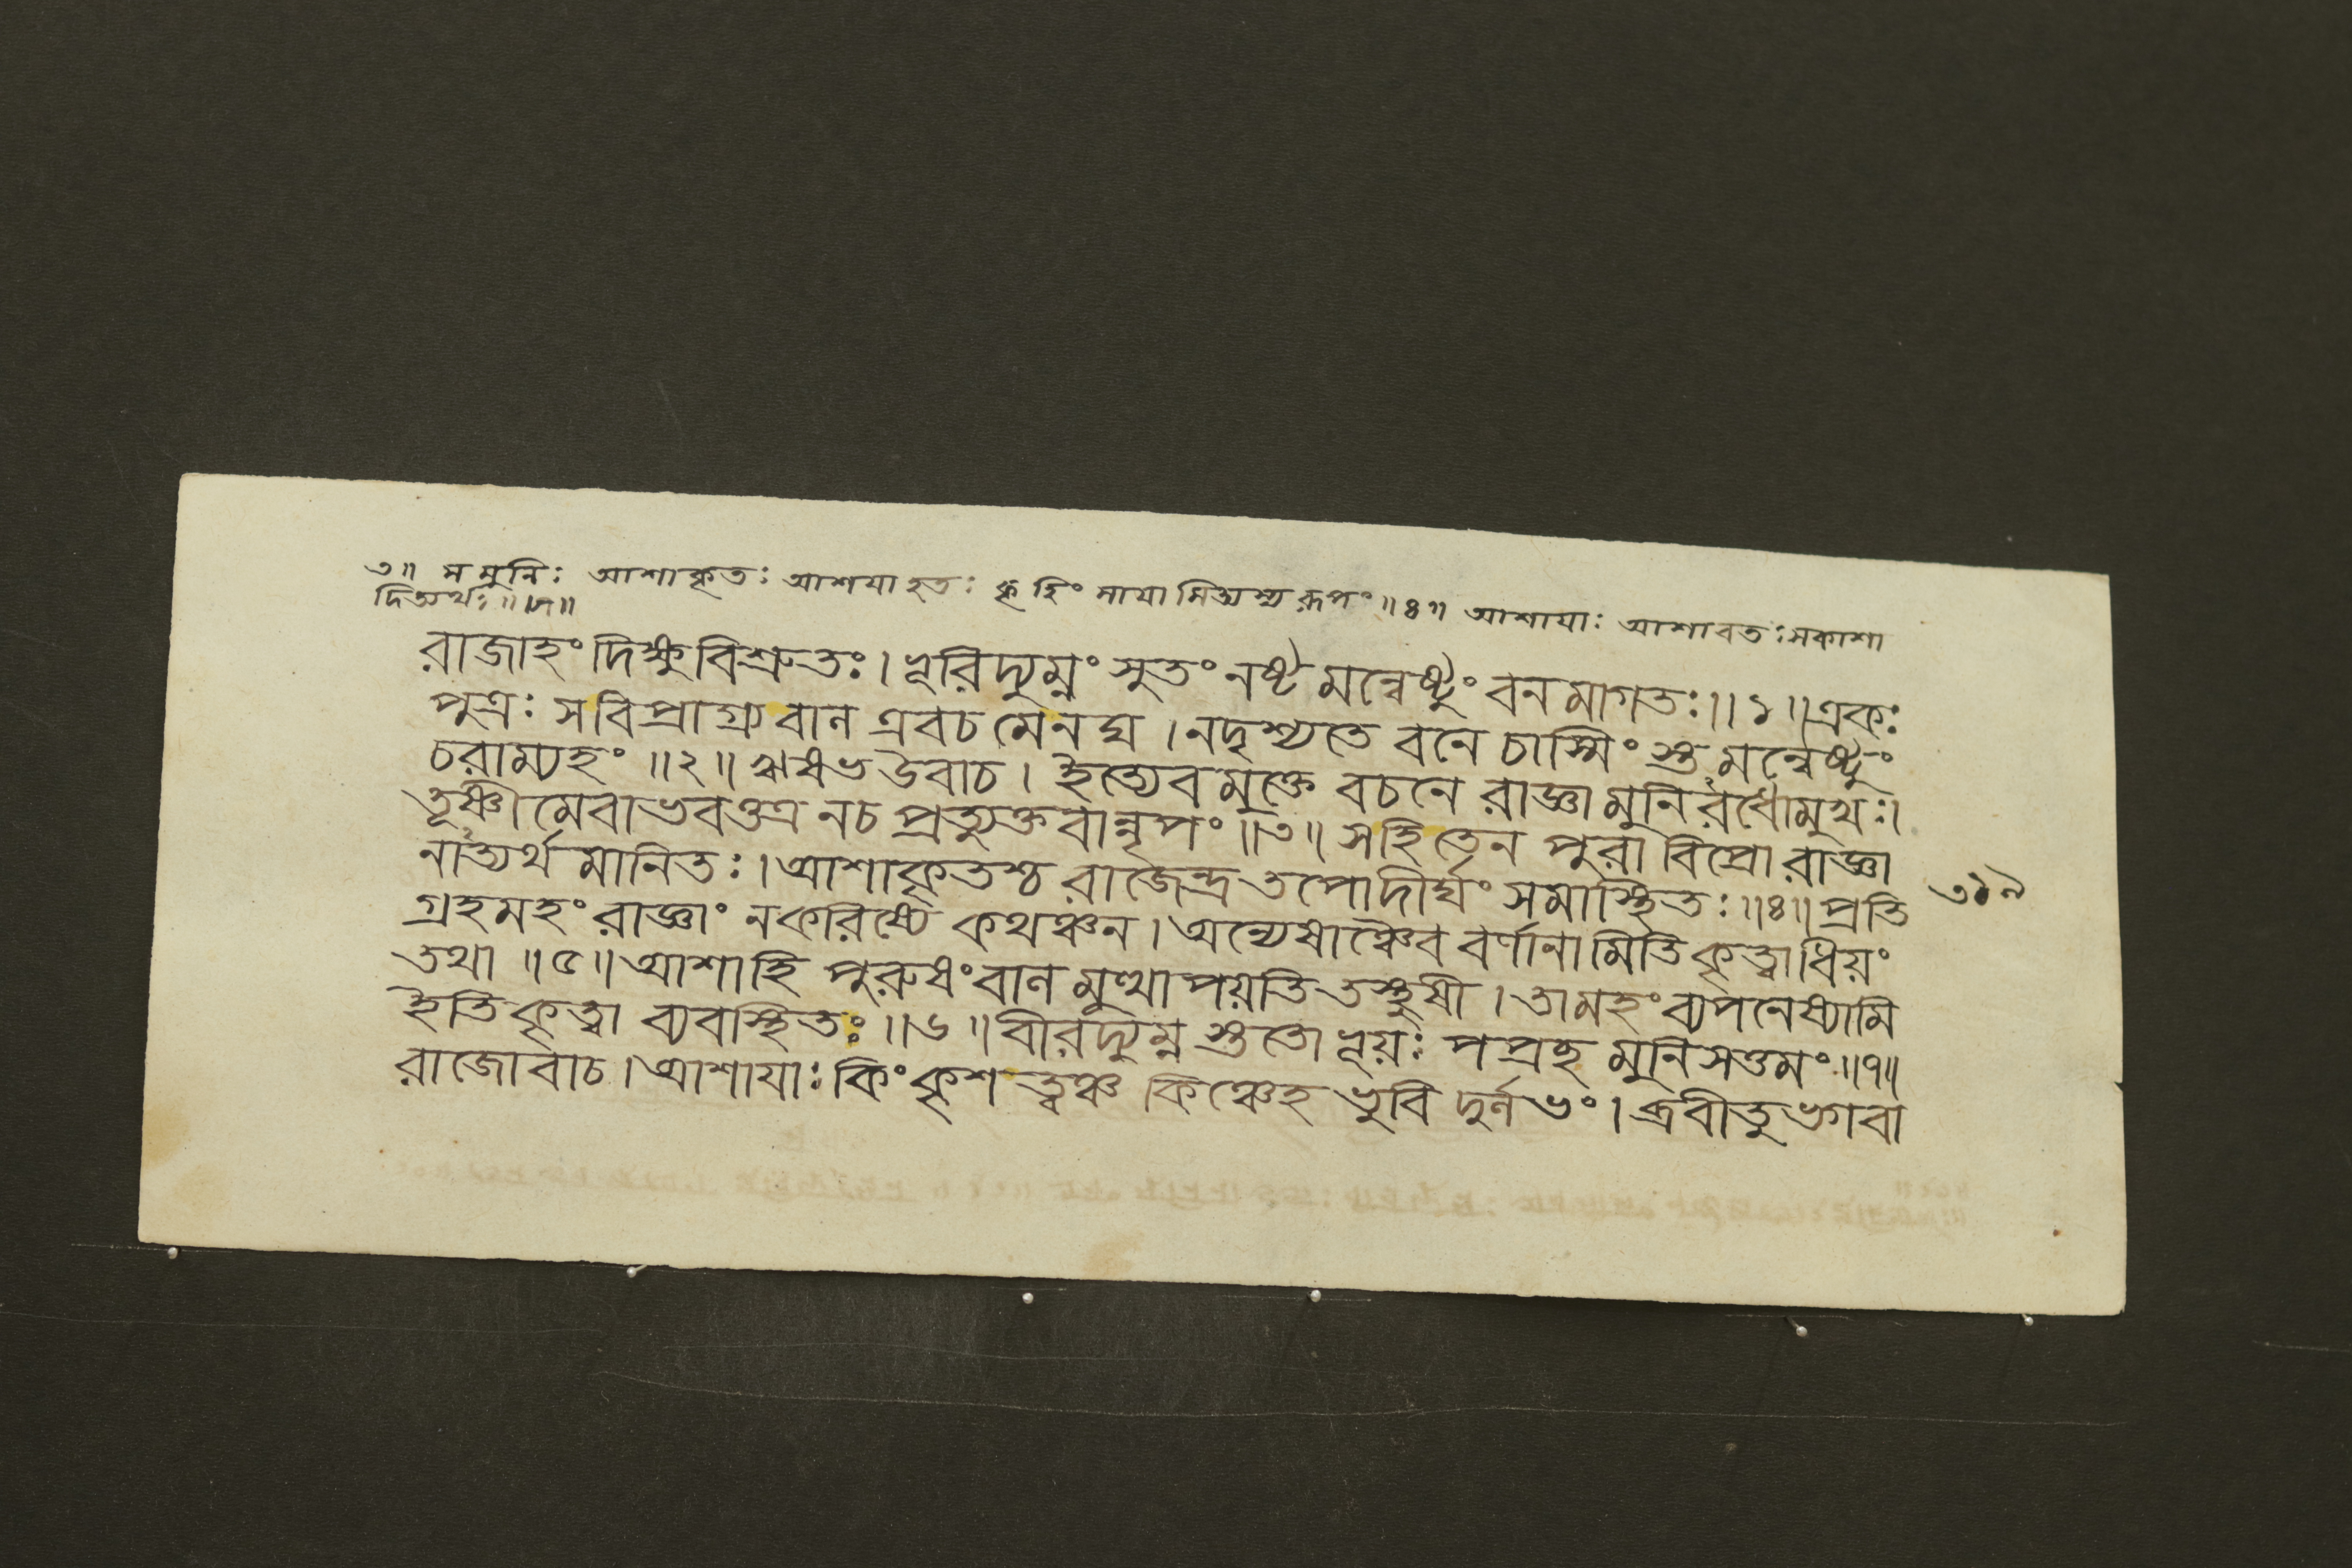 ৩॥ স মুনিঃ আশাকৃতঃ আশযা হৃতঃ কৃ ॥৪॥ আশাযাঃ আশাবতঃ সকাশা
দিত্যর্থঃ ॥৭॥
রাজাহং দিক্ষু বিশ্রুতঃ। ভূরিদ্যুম্নং সুতং নষ্টমন্বেষ্টুং বনমাগতঃ॥১॥ একঃ
পুত্রঃ সবিপ্রাগ্র্য বাল এবচ মেনঘ। নদৃশ্যতে বনে চাস্মিংস্তমন্বেষ্টুং
চরাম্যহং ॥২॥ ঋষভ উবাচ। ইত্যেবমুক্তে বচনে রাজ্ঞা মুনিরধোমুখঃ।
তূষ্ণীমেবাভবত্তত্র নচ প্রত্যুক্তবান্নৃপং ॥৩॥ সহি তেন পুরা বিপ্রো রাজ্ঞা
নাত্যর্থমানিতঃ। আশাকৃতশ্চ রাজেন্দ্র তপোদীর্ঘং সমাস্থিতঃ॥৪॥ প্রতি ৩১৯
গ্রহমহং রাজ্ঞাং নকরিষ্যে কথঞ্চন। অন্যেষাঞ্চৈব বর্ণানামিতি কৃত্বাধিয়ং
তথা ॥৫॥ আশাহি পুরুষং বালমুত্থাপয়তি তস্থুষী। তামহং ব্যপনেষ্যামি
ইতি কৃত্বা ব্যবস্থিতঃ॥৬॥ বীরদ্যুম্নস্তুতো ভূয়ঃ পপ্রছ মুনিসত্তমং॥৭॥
রাজোবাচ। আশাযাঃ কিংকৃশত্বঞ্চ কিঞ্চেহ ভুবি দুর্লভং। ব্রবীতু ভগবা